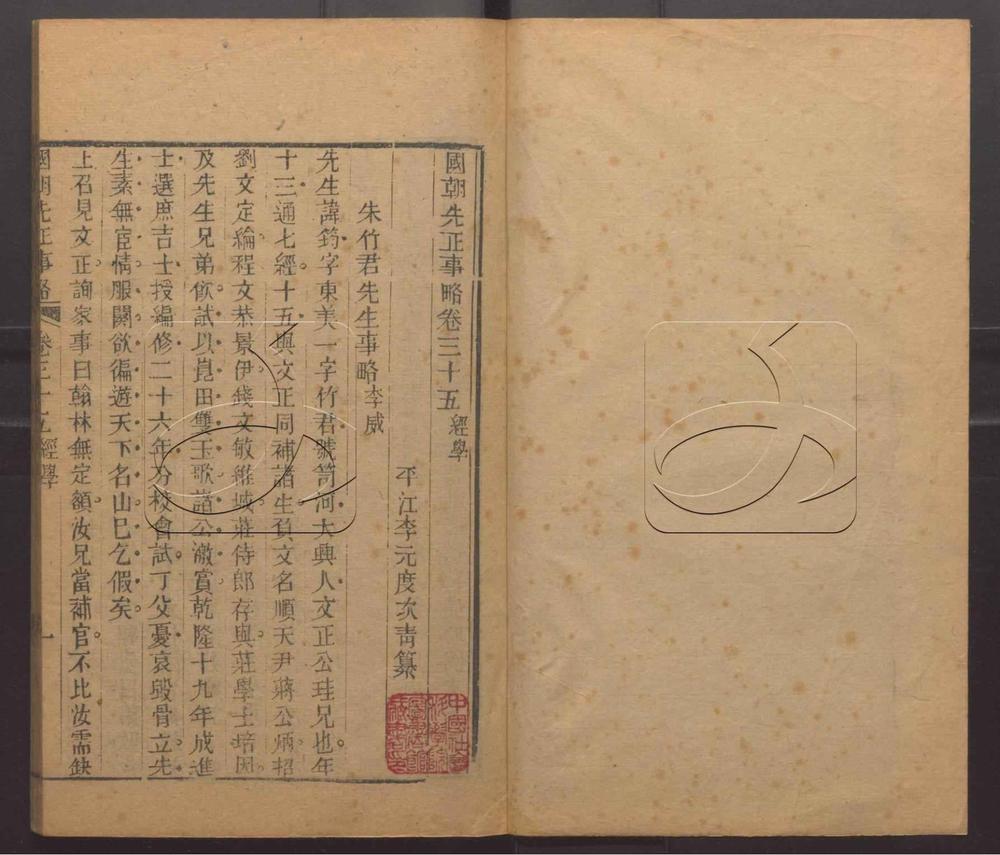 國朝先正事略卷三十五 經學
平江李元度次青纂
朱竹君先生事略 李威
先生諱筠字東美一字竹君號笥河大興人文正公珪兄也年
十三通七經十五與文正同補諸生負文名順天尹蔣公炳招
劉文定綸程文恭景伊錢文敏維城莊侍郎存與莊學士培因
及先生兄弟飲試以崑田雙玉歌諸公激賞乾隆十九年成進
士選庶吉士授編修二十六年分校會試丁父憂哀毀骨立先
生素無宦情服闋欲徧遊天下名山已乞假矣
上召見文正詢家事曰翰林無定額汝兄當補官不比汝需缺
國朝先正事略 卷三十五 經學 一